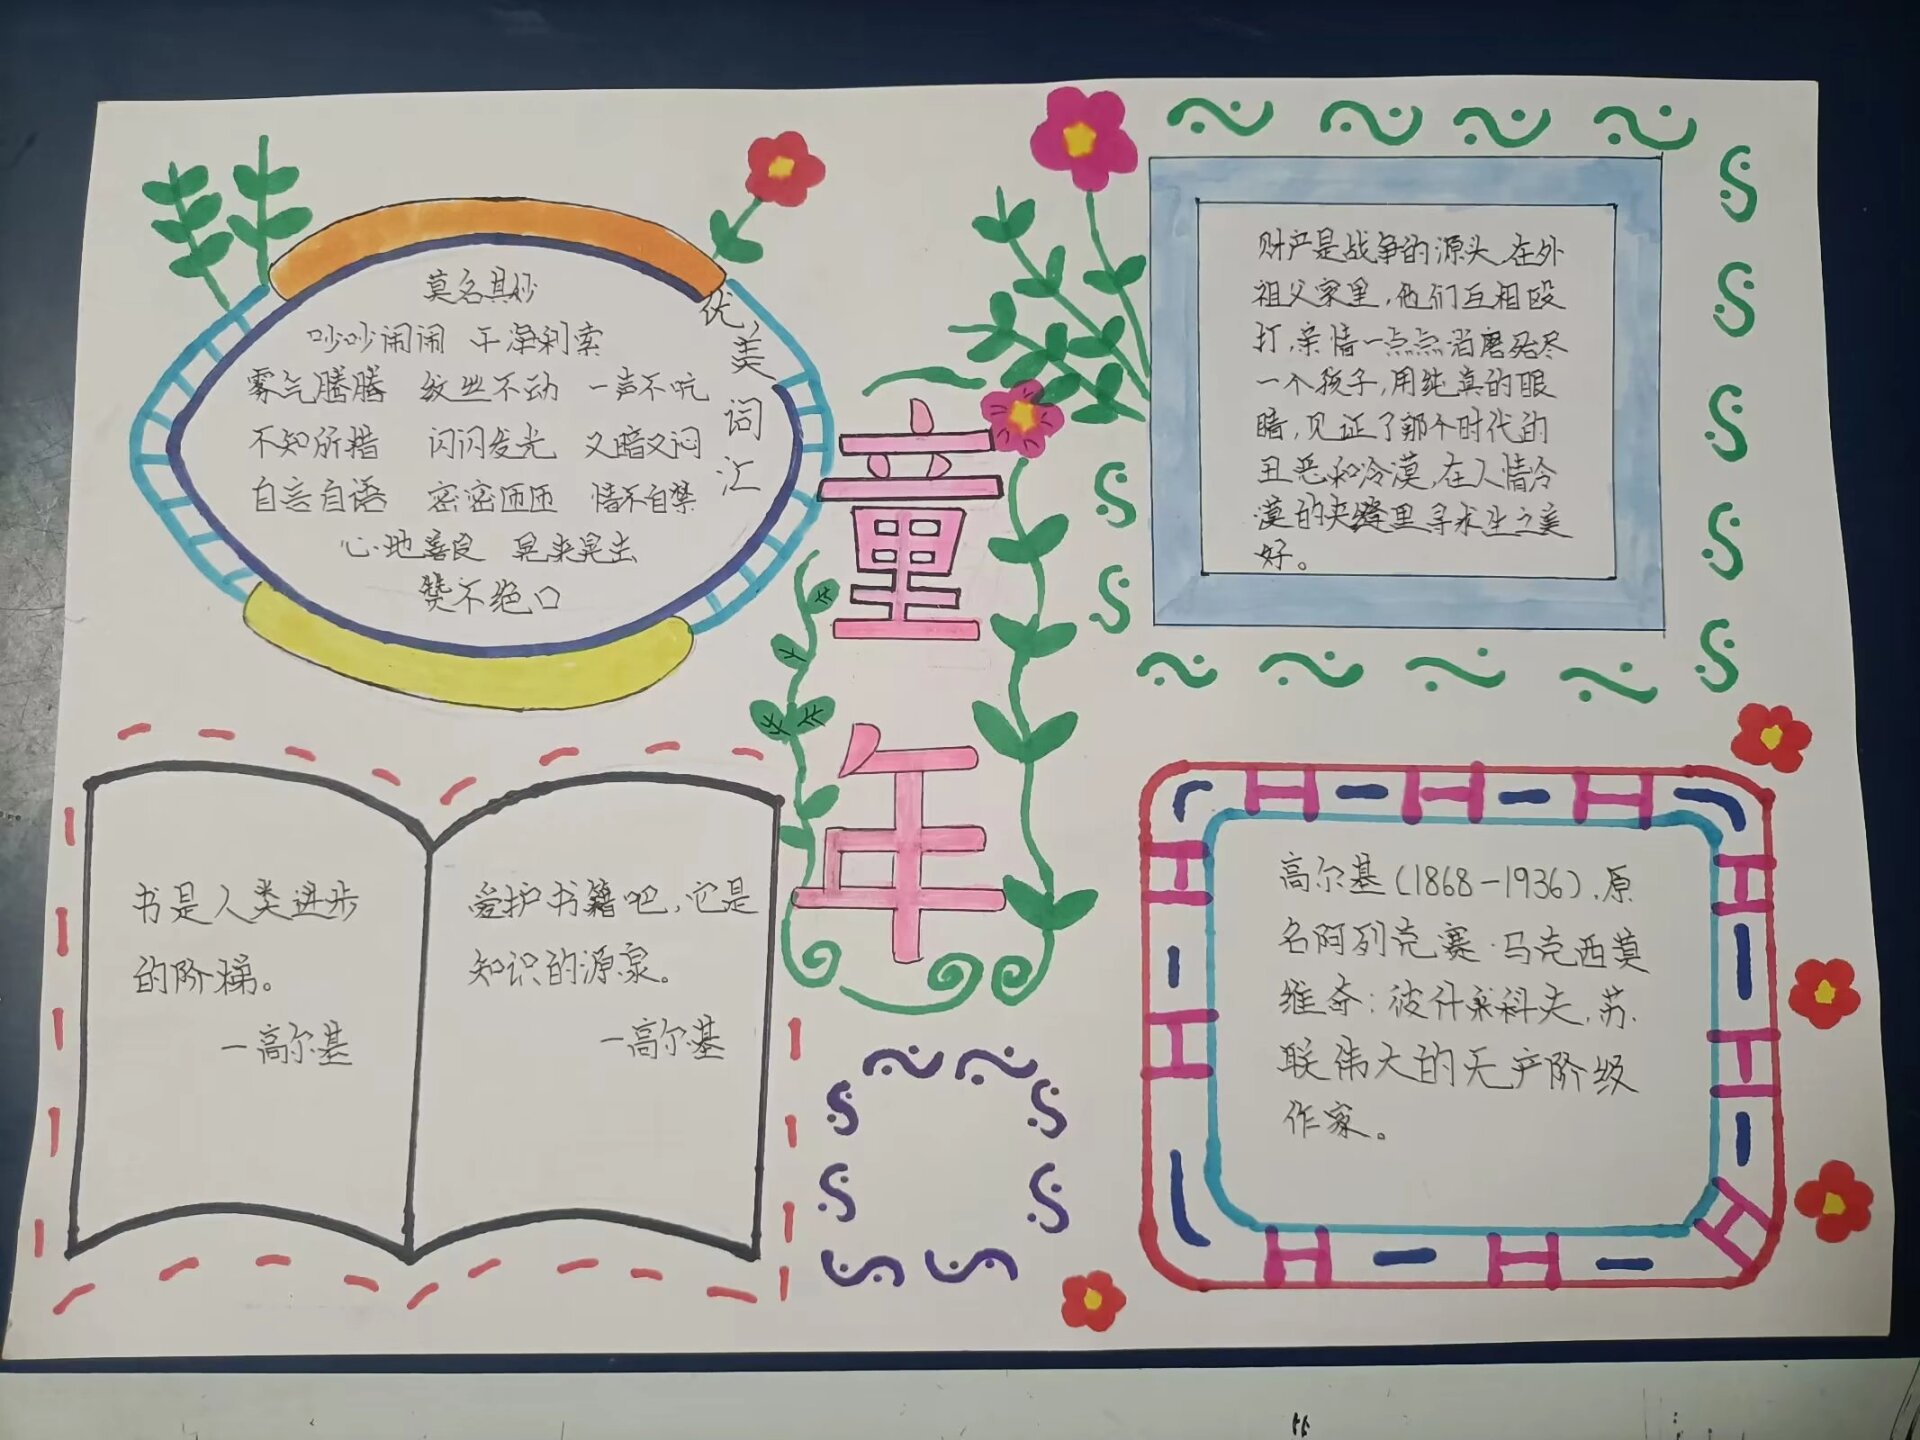 莫名其妙
吵吵闹闹 干净利索
雾气腾腾 纹丝不动 一声不吭
不知所措 闪闪发光 又暗又闷
自言自语 密密匝匝 情不自禁
心地善良 晃来晃去
赞不绝口
优美词汇
童年
财产是战争的源头,在外
祖父家里,他们互相殴
打,亲情一点点消磨殆尽
一个孩子,用纯真的眼
睛,见证了那个时代的
丑恶和冷漠,在人情冷
漠的夹缝里寻求生之美
好。
书是人类进步
的阶梯。
—高尔基
爱护书籍吧,它是
知识的源泉。
—高尔基
高尔基(1868-1936),原
名阿列克赛·马克西莫
维奇·彼什科夫,苏
联伟大的无产阶级
作家。